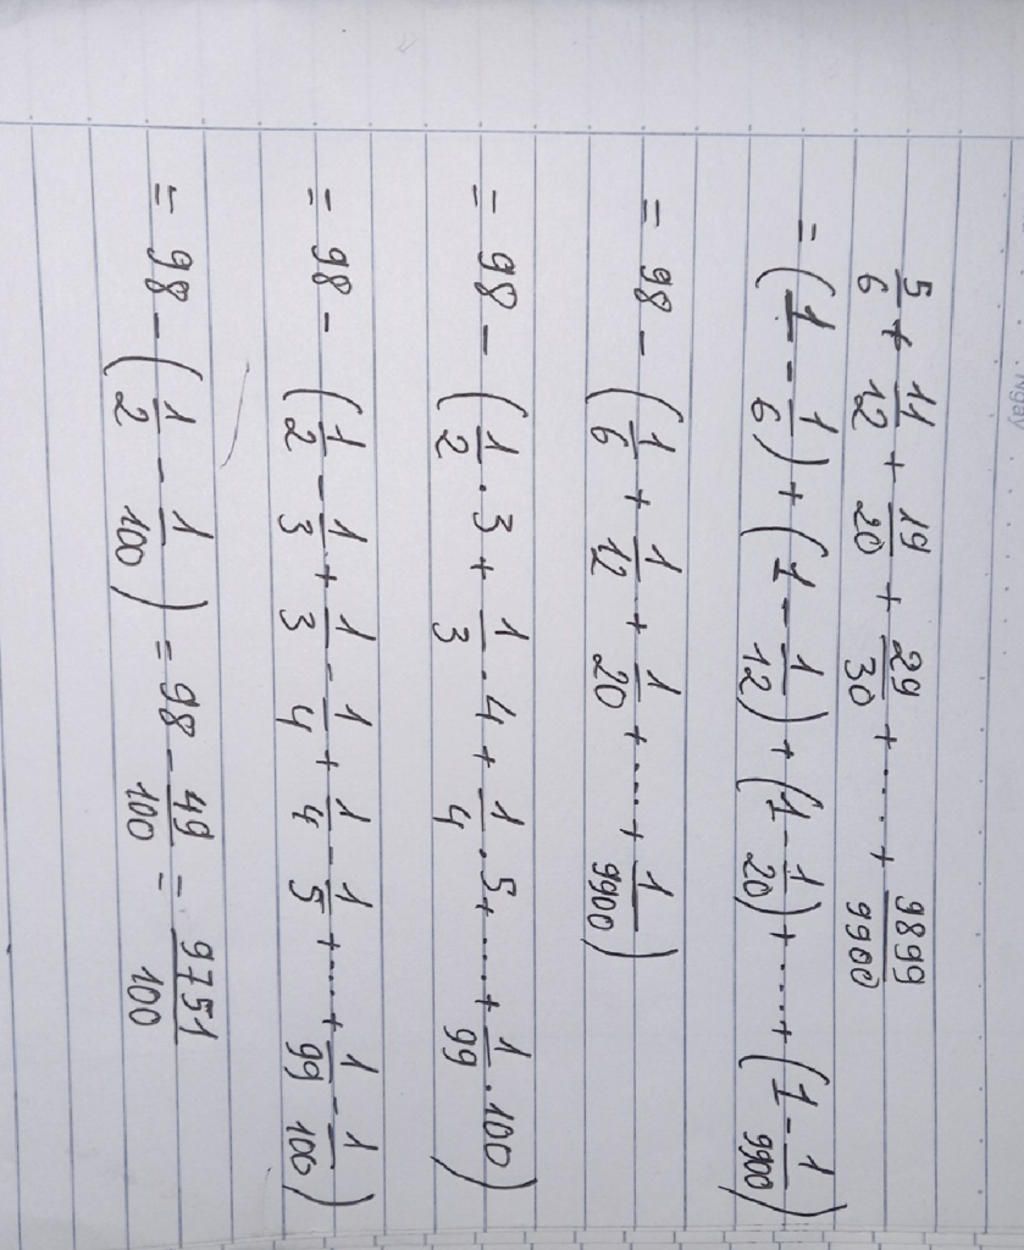 Ngày
5/6 + 11/12 + 19/20 + 29/30 + ..... + 9899/9900
= (1 - 1/6) + (1 - 1/12) + (1 - 1/20) + ..... + (1 - 1/9900)
= 98 - (1/6 + 1/12 + 1/20 + ..... + 1/9900)
= 98 - (1/2 . 3 + 1/3 . 4 + 1/4 . 5 + ..... + 1/99 . 100)
= 98 - (1/2 - 1/3 + 1/3 - 1/4 + 1/4 - 1/5 + ..... + 1/99 - 1/100)
= 98 - (1/2 - 1/100) = 98 - 49/100 = 9751/100